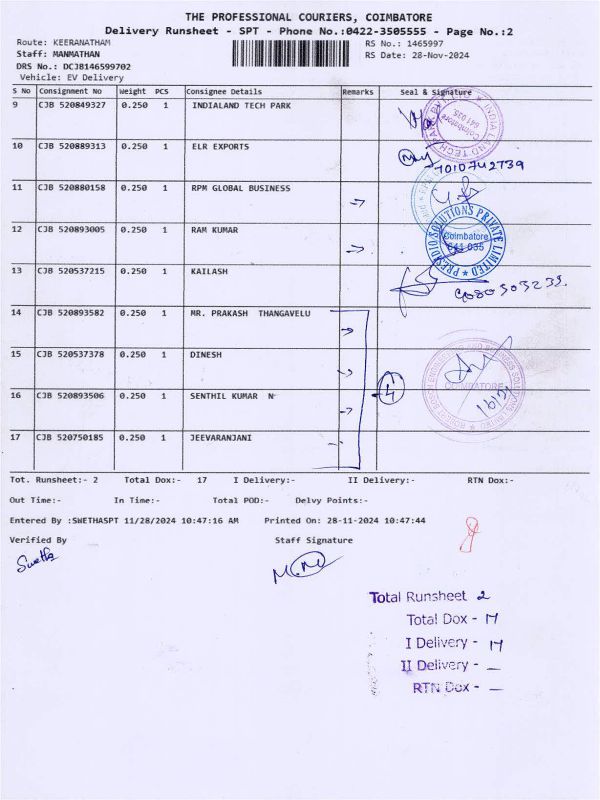 THE PROFESSIONAL COURIERS, COIMBATORE
Delivery Runsheet - SPT - Phone No.:0422-3505555 - Page No.:2
Route: KEERANATHAM
Staff: MANMATHAN
DRS No.: DCJB146599702
Vehicle: EV Delivery
RS No.: 1465997
RS Date: 28-Nov-2024
S No Consignment No Weight PCS Consignee Details Remarks Seal & Signature
9 CJB 520849327 0.250 1 INDIALAND TECH PARK
10 CJB 520889313 0.250 1 ELR EXPORTS
7010742739
11 CJB 520880158 0.250 1 RPM GLOBAL BUSINESS
12 CJB 520893005 0.250 1 RAM KUMAR
PRESIDIO SOLUTIONS PRIVATE LIMITED
Coimbatore
641 035
13 CJB 520537215 0.250 1 KAILASH
14 CJB 520893582 0.250 1 MR. PRAKASH THANGAVELU
15 CJB 520537378 0.250 1 DINESH
16 CJB 520893506 0.250 1 SENTHIL KUMAR N
4
COIMBATORE
17 CJB 520750185 0.250 1 JEEVARANJANI
Tot. Runsheet:- 2 Total Dox:- 17 I Delivery:- II Delivery:- RTN Dox:-
Out Time:- In Time:- Total POD:- Delvy Points:-
Entered By :SWETHASPT 11/28/2024 10:47:16 AM Printed On: 28-11-2024 10:47:44
Verified By Staff Signature
Swetha
Total Runsheet 2
Total Dox - 17
I Delivery - 17
II Delivery - —
RTN Dox - —